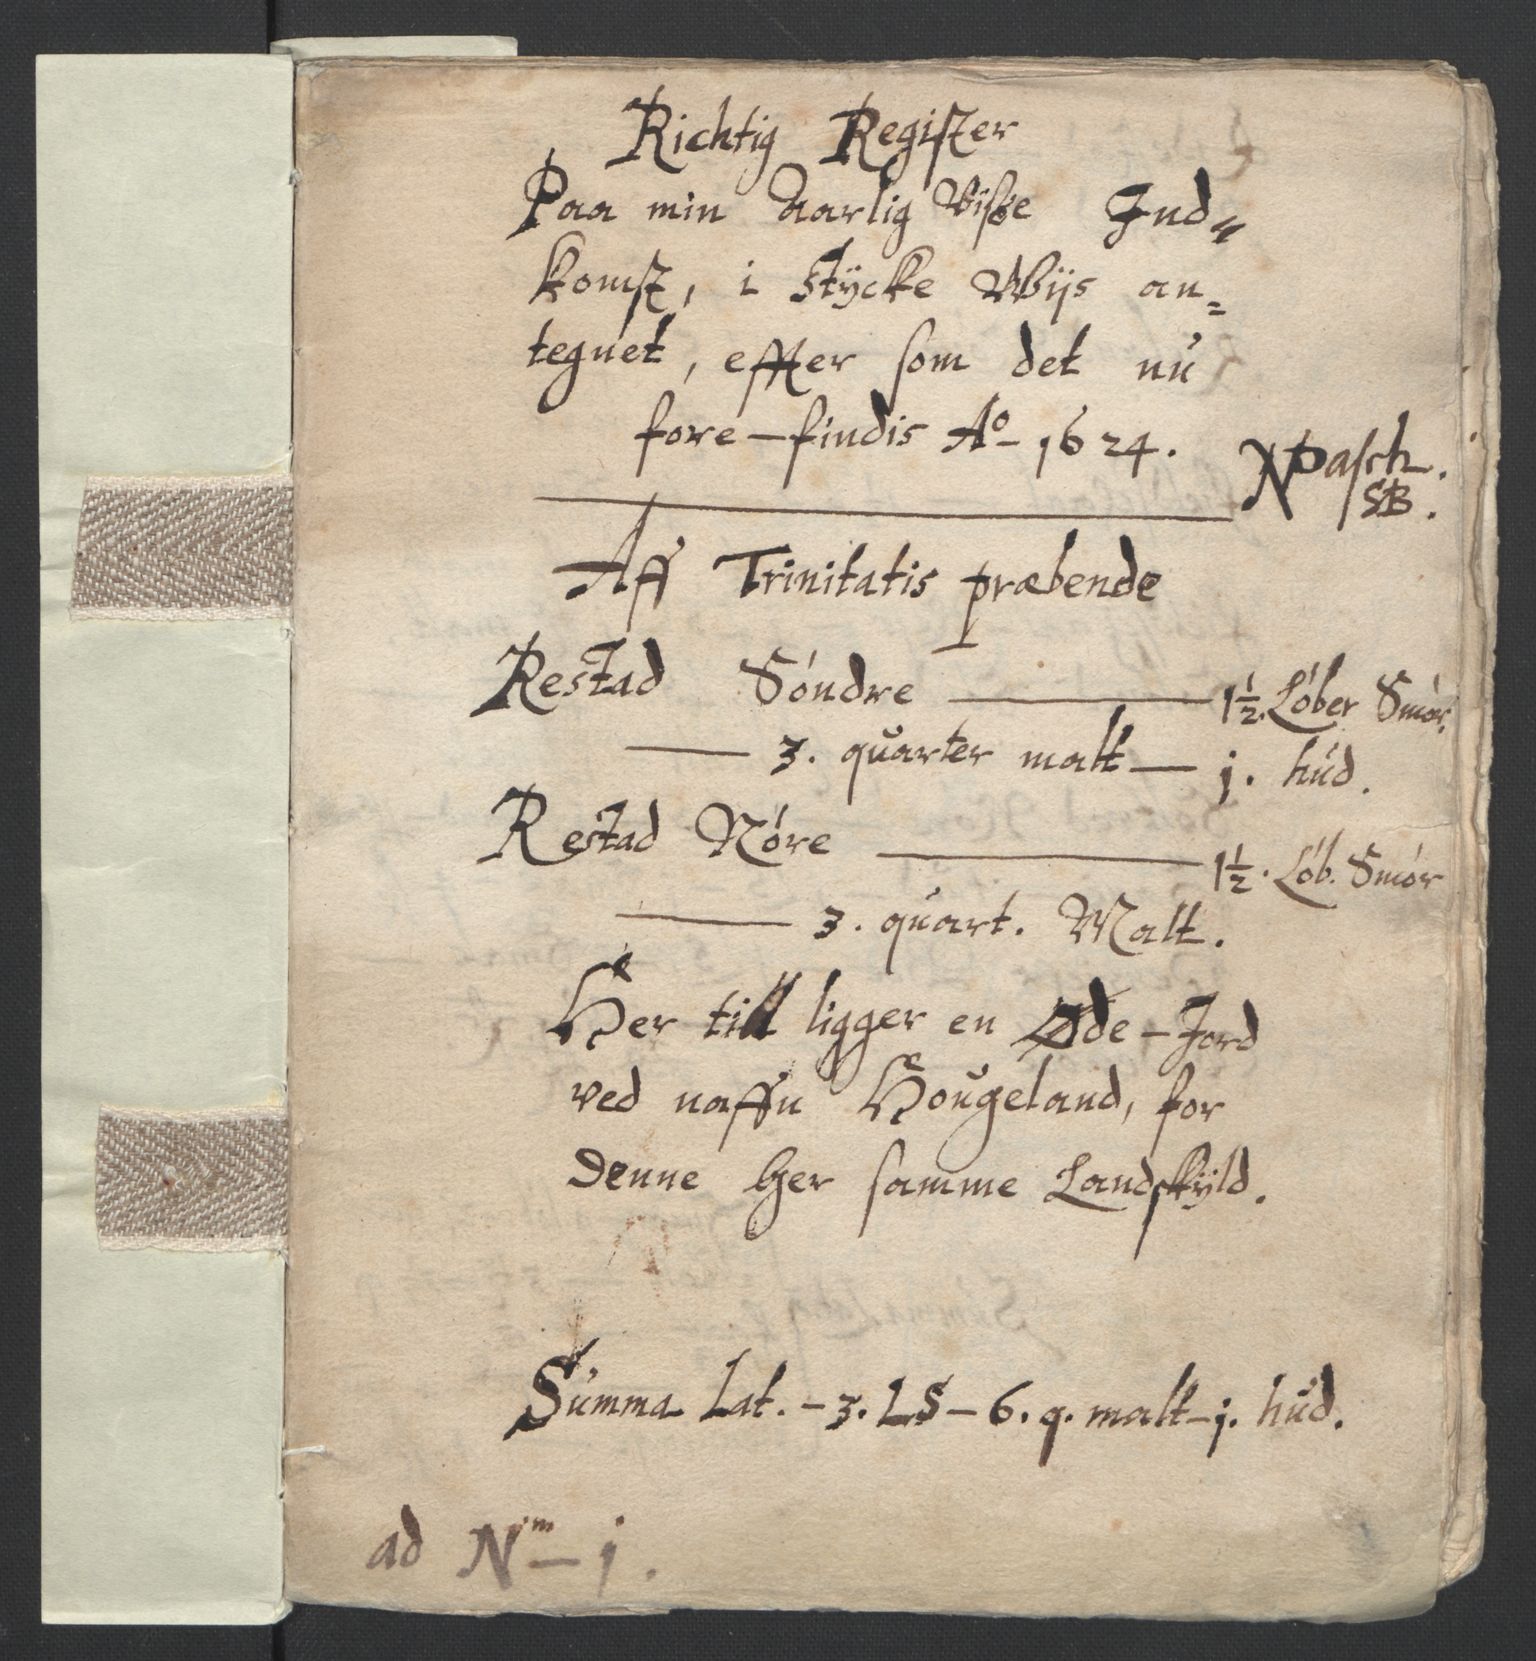 Richtig Register
Paa min Aarlig Visße Ind„
komst, i Stÿcke Wijs an=
tegnet, effter som det nú
fore-findis Aº- 1624.
NPasch.
SB.
Aff Trinitatis præbende
Restad Sóndre — 1½. Lóber Smór.
— 3. quarter malt — j. húd.
Restad Nóre — 1½. Lób. Smór
— 3. quart. Malt.
Her till ligger en Øde-Jord
ved naffn Hougeland, for
denne ger samme Landskÿld.
Summa Lat. - 3. LS - 6. q. malt - j. húd.
ad Nᵐ - j.